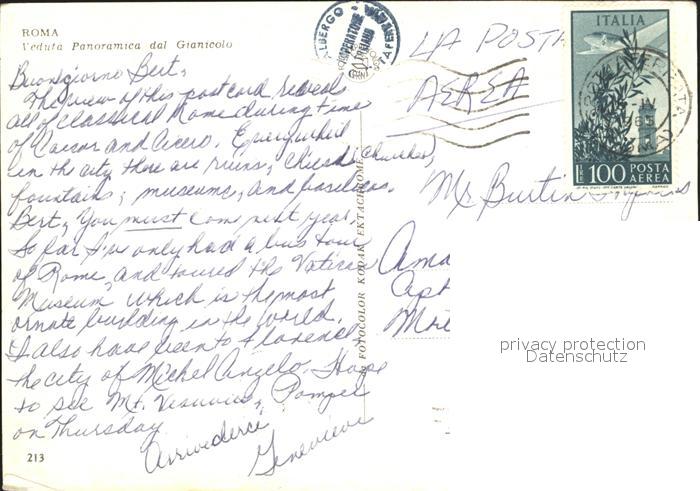 ROMA
Veduta Panoramica dal Gianicolo
Buongiorno Bert,
The view of this postcard reveals
all of classical Rome during time
of Caesar and Cicero. Everywhere
in the city there are ruins, (churches),
fountains, museums, and basilicas.
Bert, You must come next year.
So far I've only had a bus tour
of Rome, and toured the Vatican
Museum which is the most
ornate building in the world.
I also have been to Florence
the city of Michel Angelo. Hope
to see Mt. Vesuvius, Pompei
on Thursday
Arrivederci,
Genevieve
213
FOTOCOLOR KODAK EKTACHROME
ALBERGO
LA POSTA
AEREA
ITALIA
LIRE 100 POSTA
AEREA
Mr Burtin
Ama
Apt
privacy protection
Datenschutz